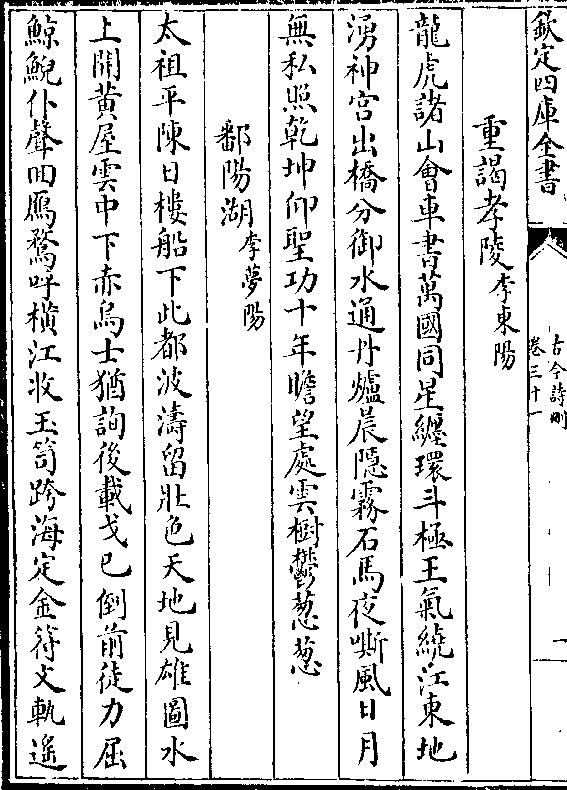 欽定四庫全書
古今詩刪
卷三十一
一
重謁孝陵李東陽
龍虎諸山會車書萬國同星纏環斗極王氣繞江東地
湧神宫出橋分御水通丹爐晨隱霧石馬夜嘶風日月
無私照乾坤仰聖功十年瞻望處雲樹鬱葱葱
鄱陽湖李夢陽
太祖平陳日樓船下此都波濤留壯色天地見雄圖水
上開黄屋雲中下赤烏士猶詢後載戈已倒前徒力屈
鯨鯢仆聲回鴈鶩呼横江收玉笥跨海定金符文軌遥